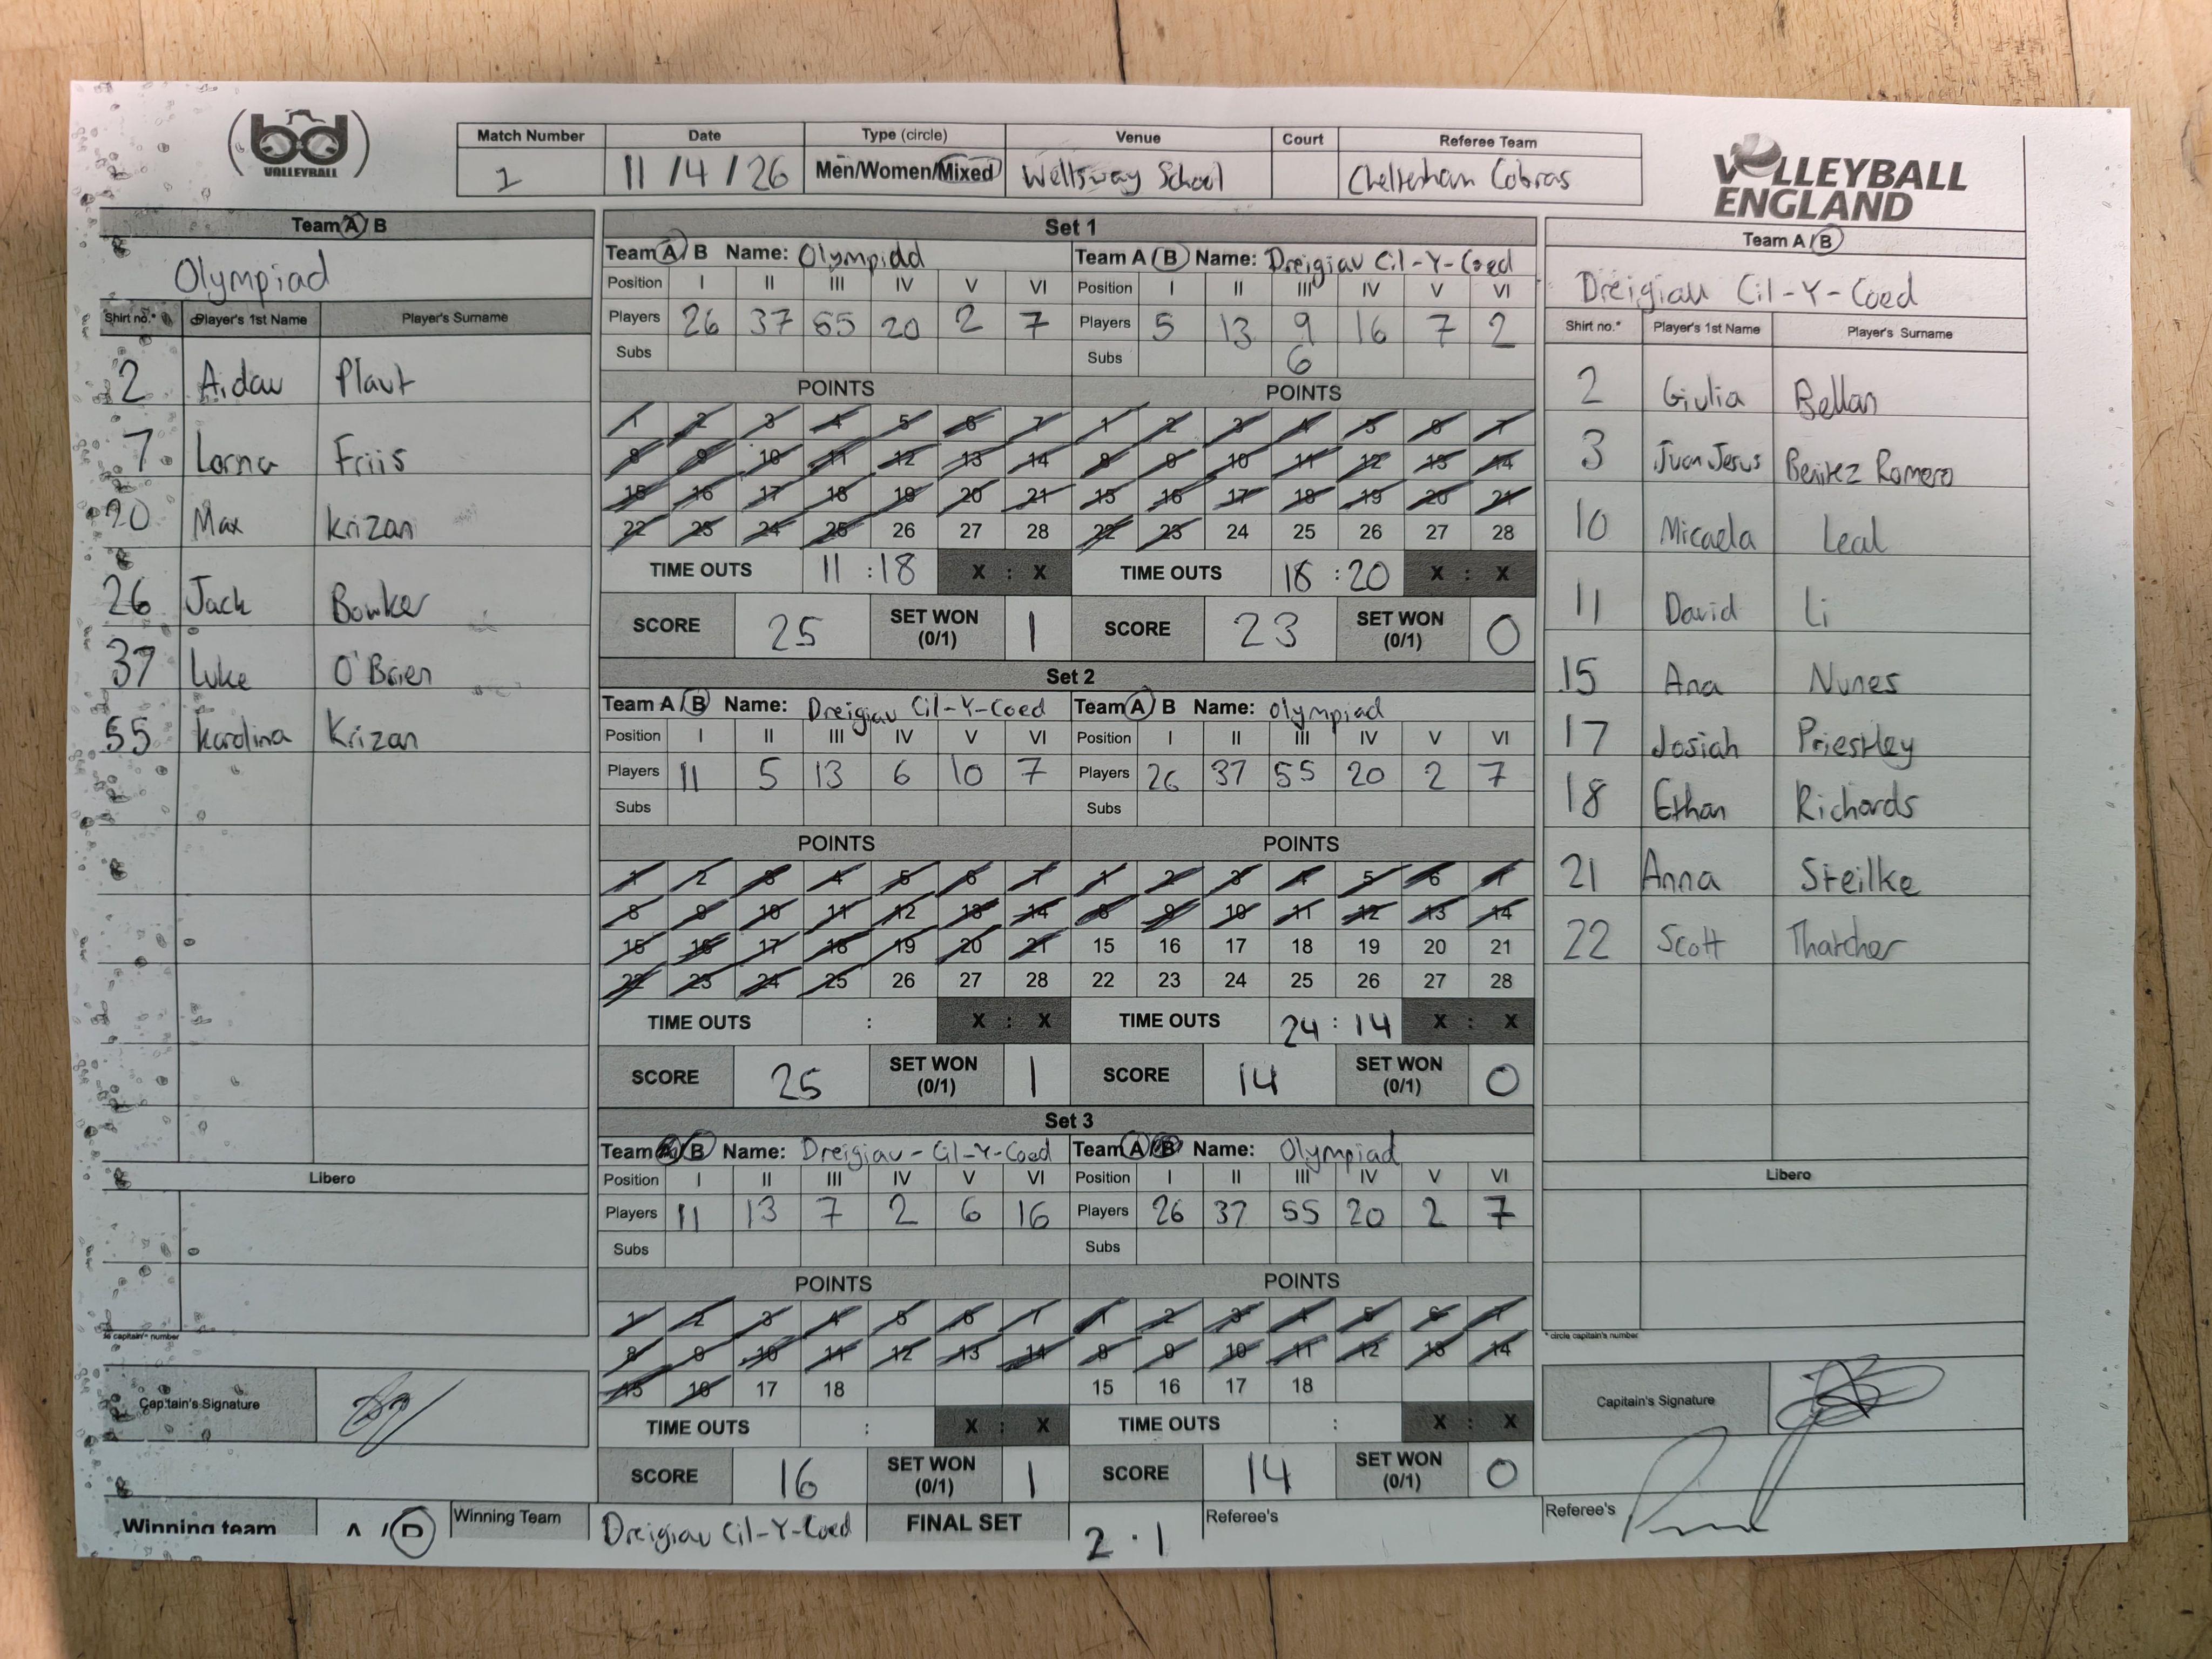 (bd)
VOLLEYBALL
Match Number Date Type (circle) Venue Court Referee Team
1 11/4/26 Men/Women/Mixed Wellsway School Cheltenham Cobras
VOLLEYBALL
ENGLAND
Team A/B
Olympiad
Shirt no.* Player's 1st Name Player's Surname
2 Aidan Plaut
7 Lorna Friis
20 Max Krizan
26 Jack Bowker
37 Luke O'Brien
55 Karolina Krizan
Libero
capitain's number
Captain's Signature
Set 1
Team A/B Name: Olympiad Team A/B Name: Dreigiau Cil-Y-Coed
Position I II III IV V VI Position I II III IV V VI
Players 26 37 55 20 2 7 Players 5 13 9 16 7 2
Subs Subs 6
POINTS POINTS
1 2 3 4 5 6 7 1 2 3 4 5 6 7
8 9 10 11 12 13 14 8 9 10 11 12 13 14
15 16 17 18 19 20 21 15 16 17 18 19 20 21
22 23 24 25 26 27 28 22 23 24 25 26 27 28
TIME OUTS 11:18 X : X TIME OUTS :20 X : X
SCORE 25 SET WON (0/1) 1 SCORE 23 SET WON (0/1) 0
Set 2
Team A/B Name: Dreigiau Cil-Y-Coed Team A/B Name: Olympiad
Position I II III IV V VI Position I II III IV V VI
Players 11 5 13 6 10 7 Players 26 37 55 20 2 7
Subs Subs
POINTS POINTS
1 2 3 4 5 6 7 1 2 3 4 5 6 7
8 9 10 11 12 13 14 8 9 10 11 12 13 14
15 16 17 18 19 20 21 15 16 17 18 19 20 21
22 23 24 25 26 27 28 22 23 24 25 26 27 28
TIME OUTS : X : X TIME OUTS 24:14 X : X
SCORE 25 SET WON (0/1) 1 SCORE 14 SET WON (0/1) 0
Set 3
Team A/B Name: Dreigiau-Cil-Y-Coed Team A/B Name: Olympiad
Position I II III IV V VI Position I II III IV V VI
Players 11 13 7 2 6 16 Players 26 37 55 20 2 7
Subs Subs
POINTS POINTS
1 2 3 4 5 6 7 1 2 3 4 5 6 7
8 9 10 11 12 13 14 8 9 10 11 12 13 14
15 16 17 18 15 16 17 18
TIME OUTS : X : X TIME OUTS : X : X
SCORE 16 SET WON (0/1) 1 SCORE 14 SET WON (0/1) 0
Team A/B
Dreigiau Cil-Y-Coed
Shirt no.* Player's 1st Name Player's Surname
2 Giulia Bellan
3 Juan Jesus Benitez Romero
10 Micaela Leal
11 David Li
15 Ana Nunes
17 Josiah Priestley
18 Ethan Richards
21 Anna Steilke
22 Scott Thatcher
Libero
* circle capitain's number
Captain's Signature
Winning team A/B Winning Team Dreigiau Cil-Y-Coed FINAL SET 2.1 Referee's Referee's